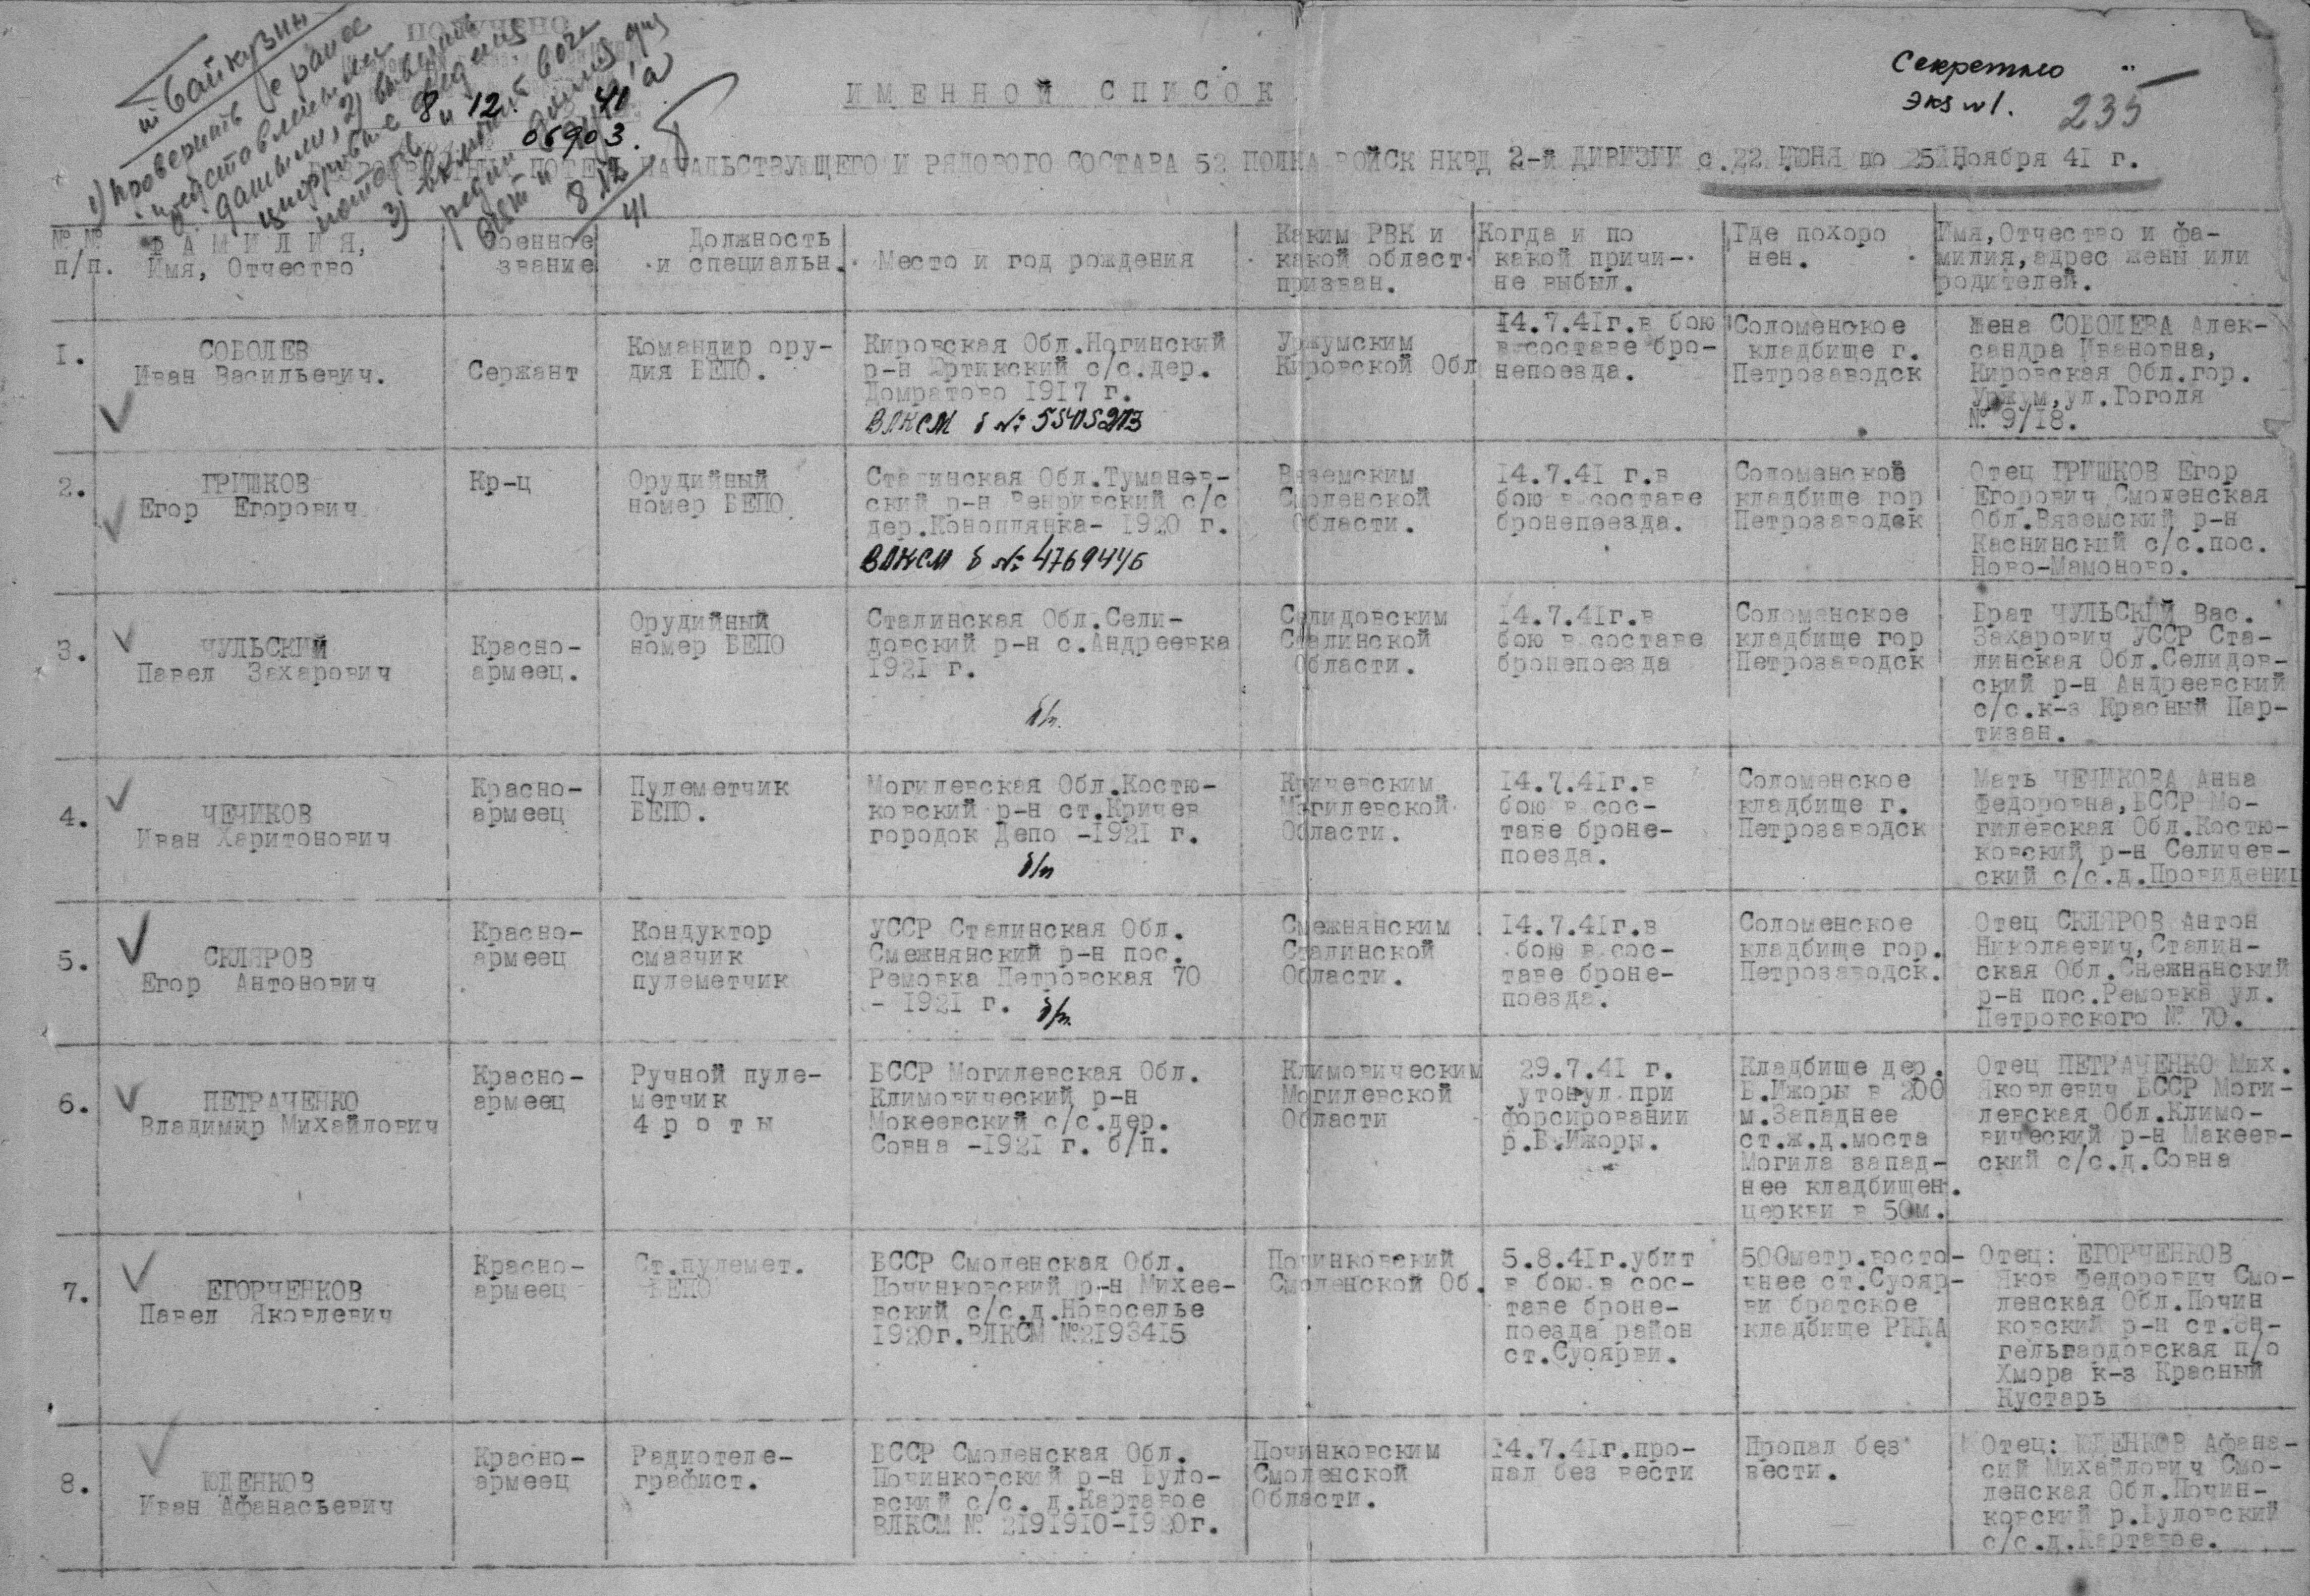 т. Байкузин
1) Проверить с ранее
представленными
данными, 2) выверить
цифровые сведения
потерь и
ПОЛУЧЕНО
8 12. 41
06903.
8 12
41
Секретно
экз №1.
235
ИМЕННОЙ СПИСОК
ПОТЕРЬ НАЧАЛЬСТВУЮЩЕГО И РЯДОВОГО СОСТАВА 52 ПОЛКА ВОЙСК НКВД 2-й ДИВИЗИИ с 22 ИЮНЯ по 25 Ноября 41 г.
№ №
п/п.
ФАМИЛИЯ,
Имя, Отчество
Военное
звание
Должность
и специальн.
Место и год рождения
Каким РВК и
какой област
призван.
Когда и по
какой причи-
не выбыл.
Где похоро
нен.
Имя, Отчество и фа-
милия, адрес жены или
родителей.
1.
СОБОЛЕВ
Иван Васильевич.
Сержант
Командир ору-
дия БЕПО.
Кировская Обл. Ногинский
р-н Юртикский с/с. дер.
Домратово 1917 г.
ВЛКСМ б №: 5505203
Уржумским
Кировской Обл
14.7.41г. в бою
в составе бро-
непоезда.
Соломенское
кладбище г.
Петрозаводск
Жена СОБОЛЕВА Алек-
сандра Ивановна,
Кировская Обл. гор.
Уржум, ул. Гоголя
№ 9/18.
2.
ГРИШКОВ
Егор Егорович
Кр-ц
Орудийный
номер БЕПО
Сталинская Обл. Туманев-
ский р-н Венривский с/с
дер. Коноплянка- 1920 г.
ВЛКСМ б №: 4769446
Вяземским
Смоленской
Области.
14.7.41 г. в
бою в составе
бронепоезда.
Соломенское
кладбище гор
Петрозаводск
Отец ГРИШКОВ Егор
Егорович Смоленская
Обл. Вяземский р-н
Каснинский с/с. пос.
Ново-Мамоново.
3.
ЧУЛЬСКИЙ
Павел Захарович
Красно-
армеец.
Орудийный
номер БЕПО
Сталинская Обл. Сели-
довский р-н с. Андреевка
1921 г.
б/п.
Селидовским
Сталинской
Области.
14.7.41г. в
бою в составе
бронепоезда
Соломанское
кладбище гор
Петрозаводск
Брат ЧУЛЬСКИЙ Вас.
Захарович УССР Ста-
линская Обл. Селидов-
ский р-н Андреевский
с/с. к-з Красный Пар-
тизан.
4.
ЧЕЧИКОВ
Иван Харитонович
Красно-
армеец
Пулеметчик
БЕПО.
Могилевская Обл. Костю-
ковский р-н ст. Кричев
городок Депо -1921 г.
б/п
Кричевским
Могилевской
Области.
14.7.41г. в
бою в сос-
таве броне-
поезда.
Соломенское
кладбище г.
Петрозаводск
Мать ЧЕЧИКОВА Анна
Федоровна, БССР Мо-
гилевская Обл. Костю-
ковский р-н Селичев-
ский с/с. д. Провидениц
5.
СКЛЯРОВ
Егор Антонович
Красно-
армеец
Кондуктор
смазчик
пулеметчик
УССР Сталинская Обл.
Смежнянский р-н пос.
Ремовка Петровская 70
- 1921 г. б/п.
Смежнянским
Сталинской
Области.
14.7.41г. в
бою в сос-
таве броне-
поезда.
Соломенское
кладбище гор.
Петрозаводск.
Отец СКЛЯРОВ Антон
Николаевич, Сталин-
ская Обл. Снежнянский
р-н пос. Ремовка ул.
Петровского № 70.
6.
ПЕТРАЧЕНКО
Владимир Михайлович
Красно-
армеец
Ручной пуле-
метчик
4 роты
БССР Могилевская Обл.
Климовический р-н
Мокеевский с/с. дер.
Совна -1921 г. б/п.
Климовическим
Могилевской
Области
29.7.41 г.
утонул при
форсировании
р. Б. Ижоры.
Кладбище дер.
Б. Ижоры в 200
м. Западнее
ст. ж. д. моста
Могила запад-
нее кладбищен.
церкви в 50м.
Отец ПЕТРАЧЕНКО Мих.
Яковлевич БССР Моги-
левская Обл. Климо-
вический р-н Макеев-
ский с/с. д. Совна
7.
ЕГОРЧЕНКОВ
Павел Яковлевич
Красно-
армеец
Ст. пулемет.
БЕПО
БССР Смоленская Обл.
Починковский р-н Михее-
вский с/с. д. Новоселье
1920г. ВЛКСМ №2193415
Починковский
Смоленской Об.
5.8.41г. убит
в бою в сос-
таве броне-
поезда район
ст. Суоярви.
500метр. восто-
чнее ст. Суояр-
ви братское
кладбище РККА
Отец: ЕГОРЧЕНКОВ
Яков Федорович Смо-
ленская Обл. Почин
ковский р-н ст. Эн-
гельгардовская п/о
Хмора к-з Красный
Кустарь
8.
ЮДЕНКОВ
Иван Афанасьевич
Красно-
армеец
Радиотеле-
графист.
БССР Смоленская Обл.
Починковский р-н Було-
вский с/с. д. Картавое
ВЛКСМ № 2191910-1920г.
Починковским
Смоленской
Области.
14.7.41г. про-
пал без вести
Пропал без
вести.
Отец: ЮДЕНКОВ Афана-
сий Михайлович Смо-
ленская Обл. Почин-
ковский р. Буловский
с/с. д. Картавое.